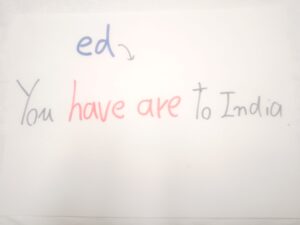 ed
You have are to India